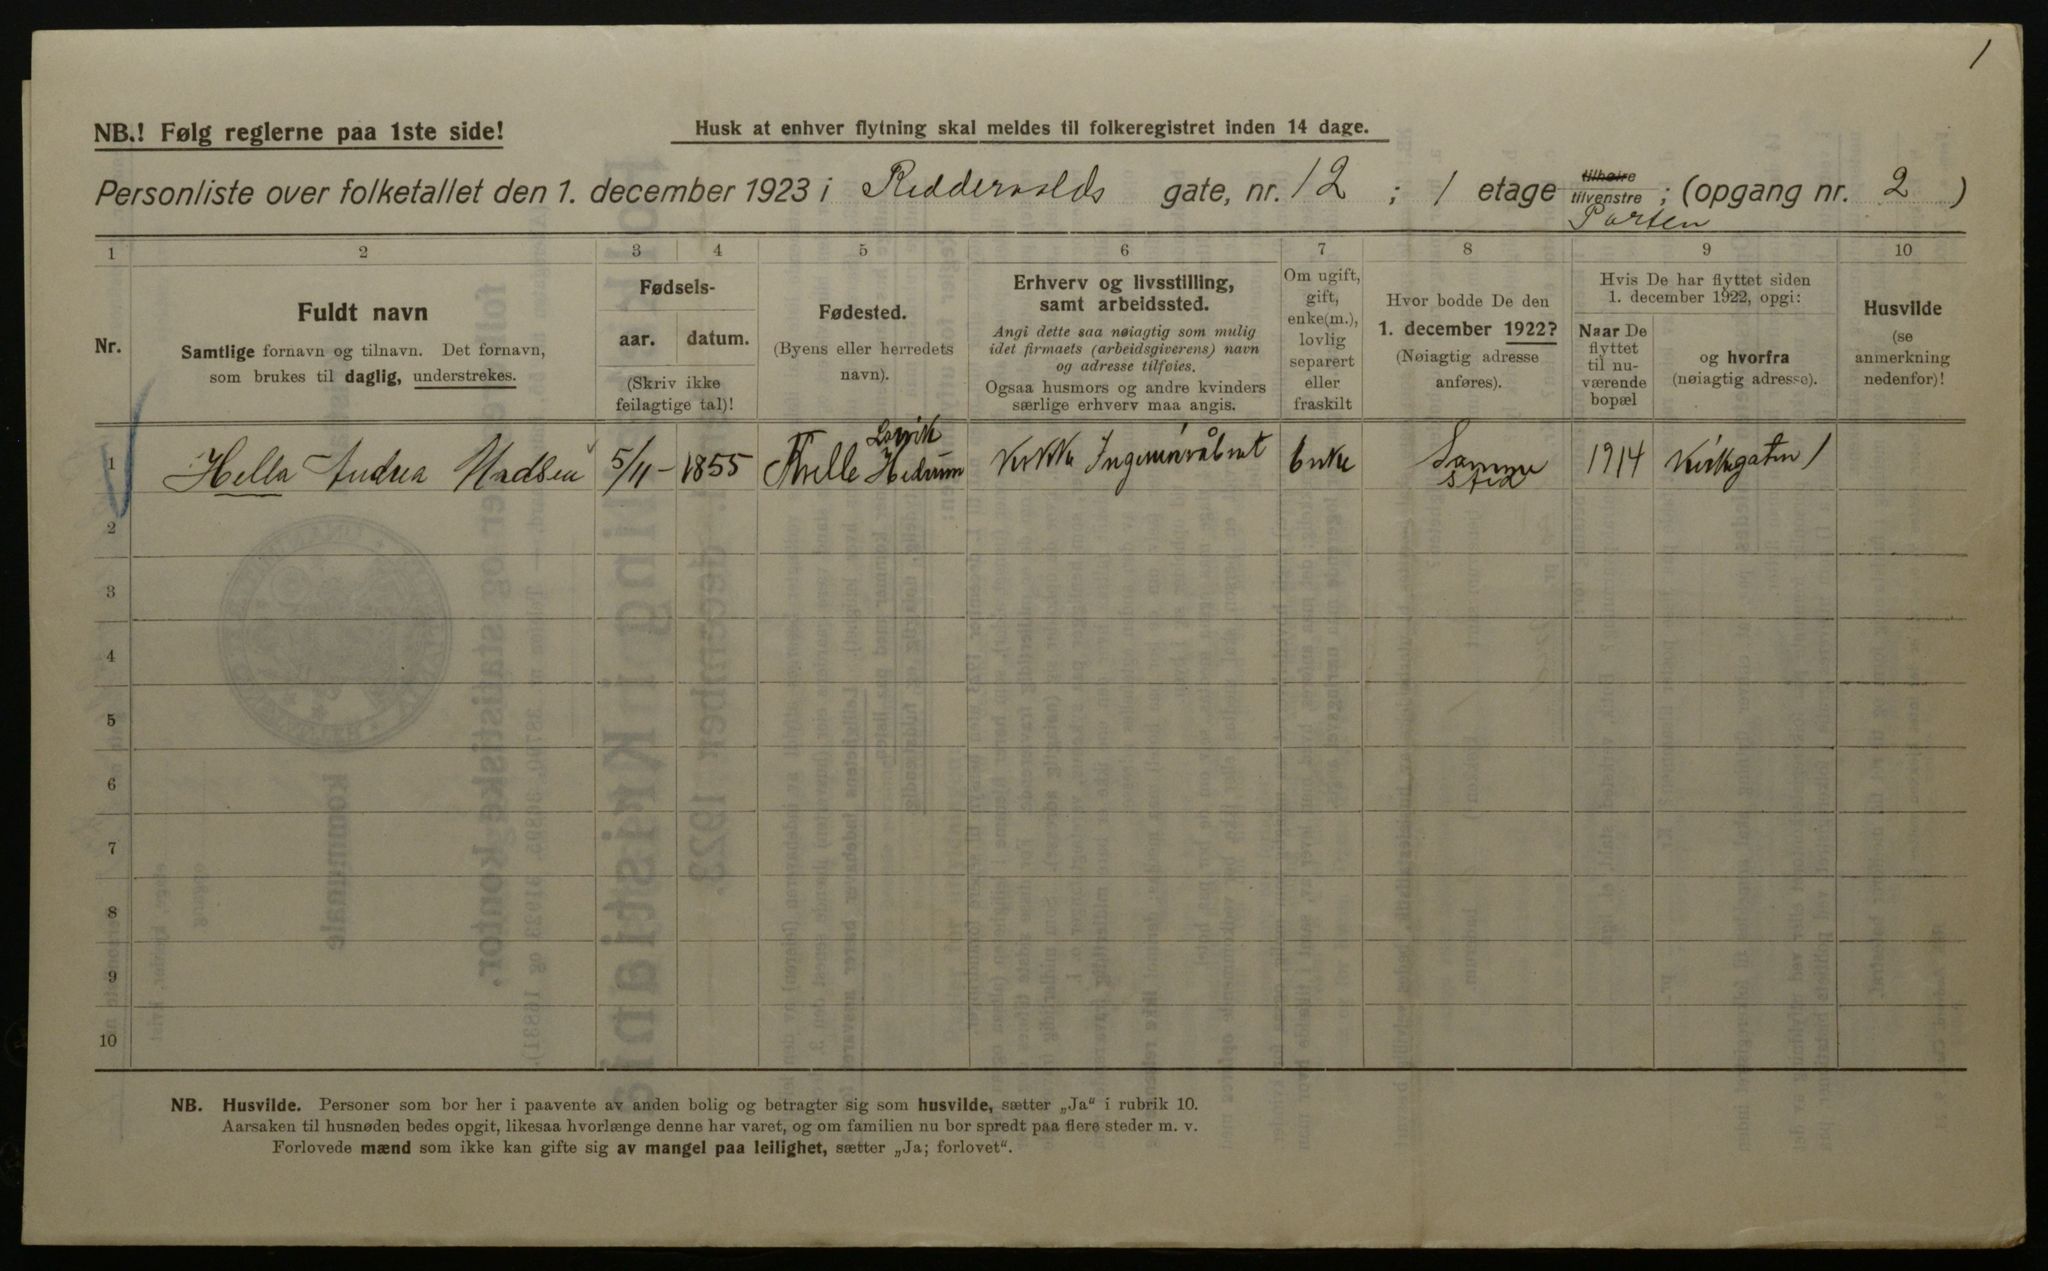 1
NB.! Følg reglerne paa 1ste side!
Husk at enhver flytning skal meldes til folkeregistret inden 14 dage.
Personliste over folketallet den 1. december 1923 i Riddervolds gate, nr. 12 ; 1 etage tilhøire tilvenstre ; (opgang nr. 2 )
Porten
1 2 3 4 5 6 7 8 9 10
Nr.
Fuldt navn
Samtlige fornavn og tilnavn. Det fornavn,
som brukes til daglig, understrekes.
Fødsels-
aar. datum.
(Skriv ikke
feilagtige tal)!
Fødested.
(Byens eller herredets
navn).
Erhverv og livsstilling,
samt arbeidssted.
Angi dette saa nøiagtig som mulig
idet firmaets (arbeidsgiverens) navn
og adresse tilføies.
Ogsaa husmors og andre kvinders
særlige erhverv maa angis.
Om ugift,
gift,
enke(m.),
lovlig
separert
eller
fraskilt
Hvor bodde De den
1. december 1922?
(Nøiagtig adresse
anføres).
Hvis De har flyttet siden
1. december 1922, opgi:
Naar De
flyttet
til nu-
værende
bopæl
og hvorfra
(nøiagtig adresse).
Husvilde
(se
anmerkning
nedenfor)!
Larvik
1 Hella Andrea Madsen 5/11 - 1855 Hedrum Enke Samme 1914 Kirkegaten 1
sted
2
3
4
5
6
7
8
9
10
NB. Husvilde. Personer som bor her i paavente av anden bolig og betragter sig som husvilde, sætter „Ja“ i rubrik 10.
Aarsaken til husnøden bedes opgit, likesaa hvorlænge denne har varet, og om familien nu bor spredt paa flere steder m. v.
Forlovede mænd som ikke kan gifte sig av mangel paa leilighet, sætter „Ja; forlovet“.